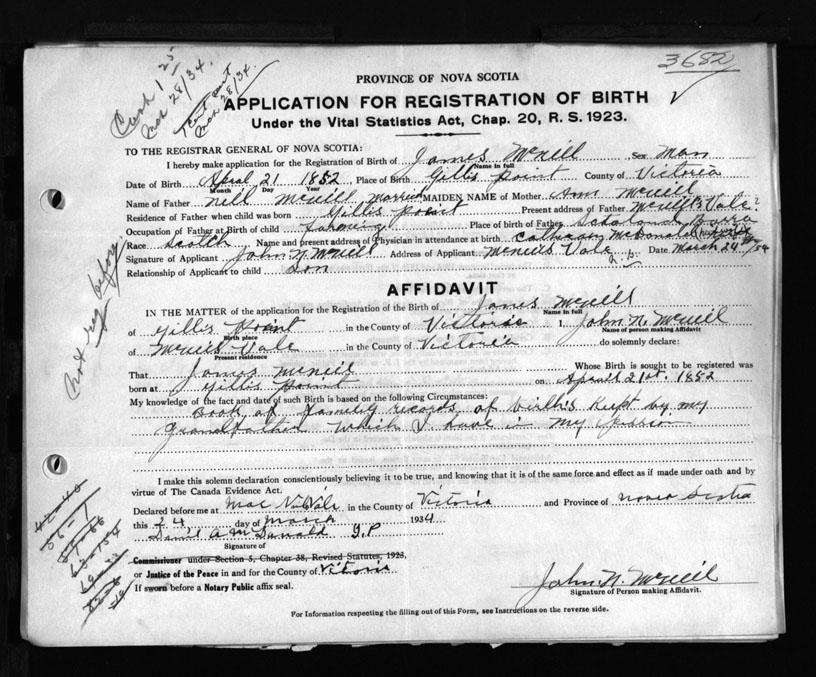 3682
Cash 1 25
Mar 28/34.
Mar 28/34.
PROVINCE OF NOVA SCOTIA
APPLICATION FOR REGISTRATION OF BIRTH
Under the Vital Statistics Act, Chap. 20, R. S. 1923.
TO THE REGISTRAR GENERAL OF NOVA SCOTIA:
I hereby make application for the Registration of Birth of James McNeill Sex Man
Name in full
Date of Birth April 21 1852 Place of Birth Gillis Point County of Victoria
Month Day Year
Name of Father Neill McNeill Married MAIDEN NAME of Mother Ann McNeill
Residence of Father when child was born Gillis Point Present address of Father McNeill's Vale?
Occupation of Father at Birth of child Farming Place of birth of Father Scotland Barra
Race Scotch Name and present address of Physician in attendance at birth Catherine McDonald
Signature of Applicant John N McNeill Address of Applicant McNeills Vale Date March 24 /34
Relationship of Applicant to child Son
AFFIDAVIT
IN THE MATTER of the application for the Registration of the Birth of James McNeill
Name in full
of Gillis Point in the County of Victoria I, John N. McNeill
Birth place Name of person making Affidavit
of McNeills Vale in the County of Victoria do solemnly declare:
Present residence
That James McNeil Whose Birth is sought to be registered was
born at Gillis Point on April 21st. 1852
My knowledge of the fact and date of such Birth is based on the following Circumstances:
Book of family records, of birth's Kept by my
Grandfather which I have in my Person
I make this solemn declaration conscientiously believing it to be true, and knowing that it is of the same force and effect as if made under oath and by
virtue of The Canada Evidence Act.
Declared before me at in the County of Victoria and Province of Nova Scotia
this 24 day of March 1934
A McDonald J.P
Signature of
Commissioner under Section 5, Chapter 38, Revised Statutes, 1923,
or Justice of the Peace in and for the County of Vitoria
If sworn before a Notary Public affix seal.
John N. McNeill
Signature of Person making Affidavit.
For Information respecting the filling out of this Form, see Instructions on the reverse side.
Not reg before